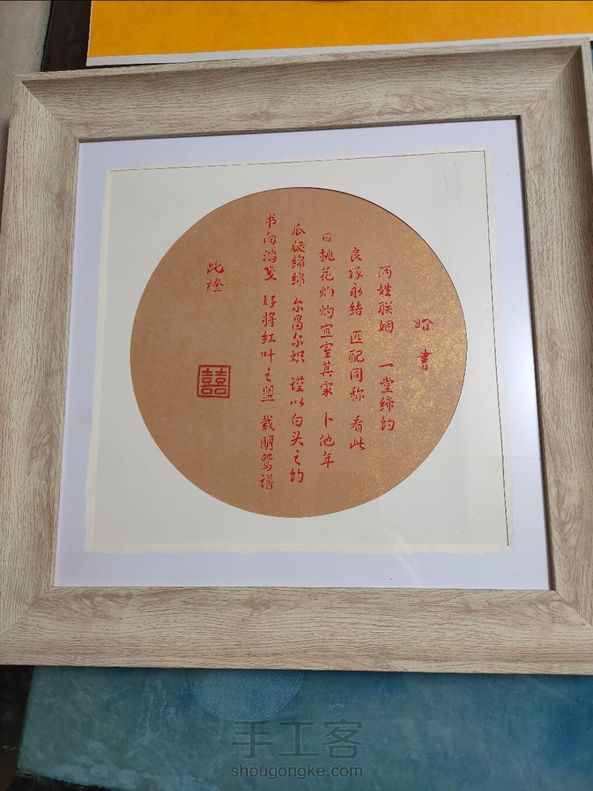 婚書
两姓联姻 一堂缔约
良缘永结 匹配同称 看此
日桃花灼灼 宜室其家 卜他年
瓜瓞绵绵 尔昌尔炽 谨以白头之约
书向鸿笺 好将红叶之盟 载明鸳谱
此证
囍
手工客
shougongke.com